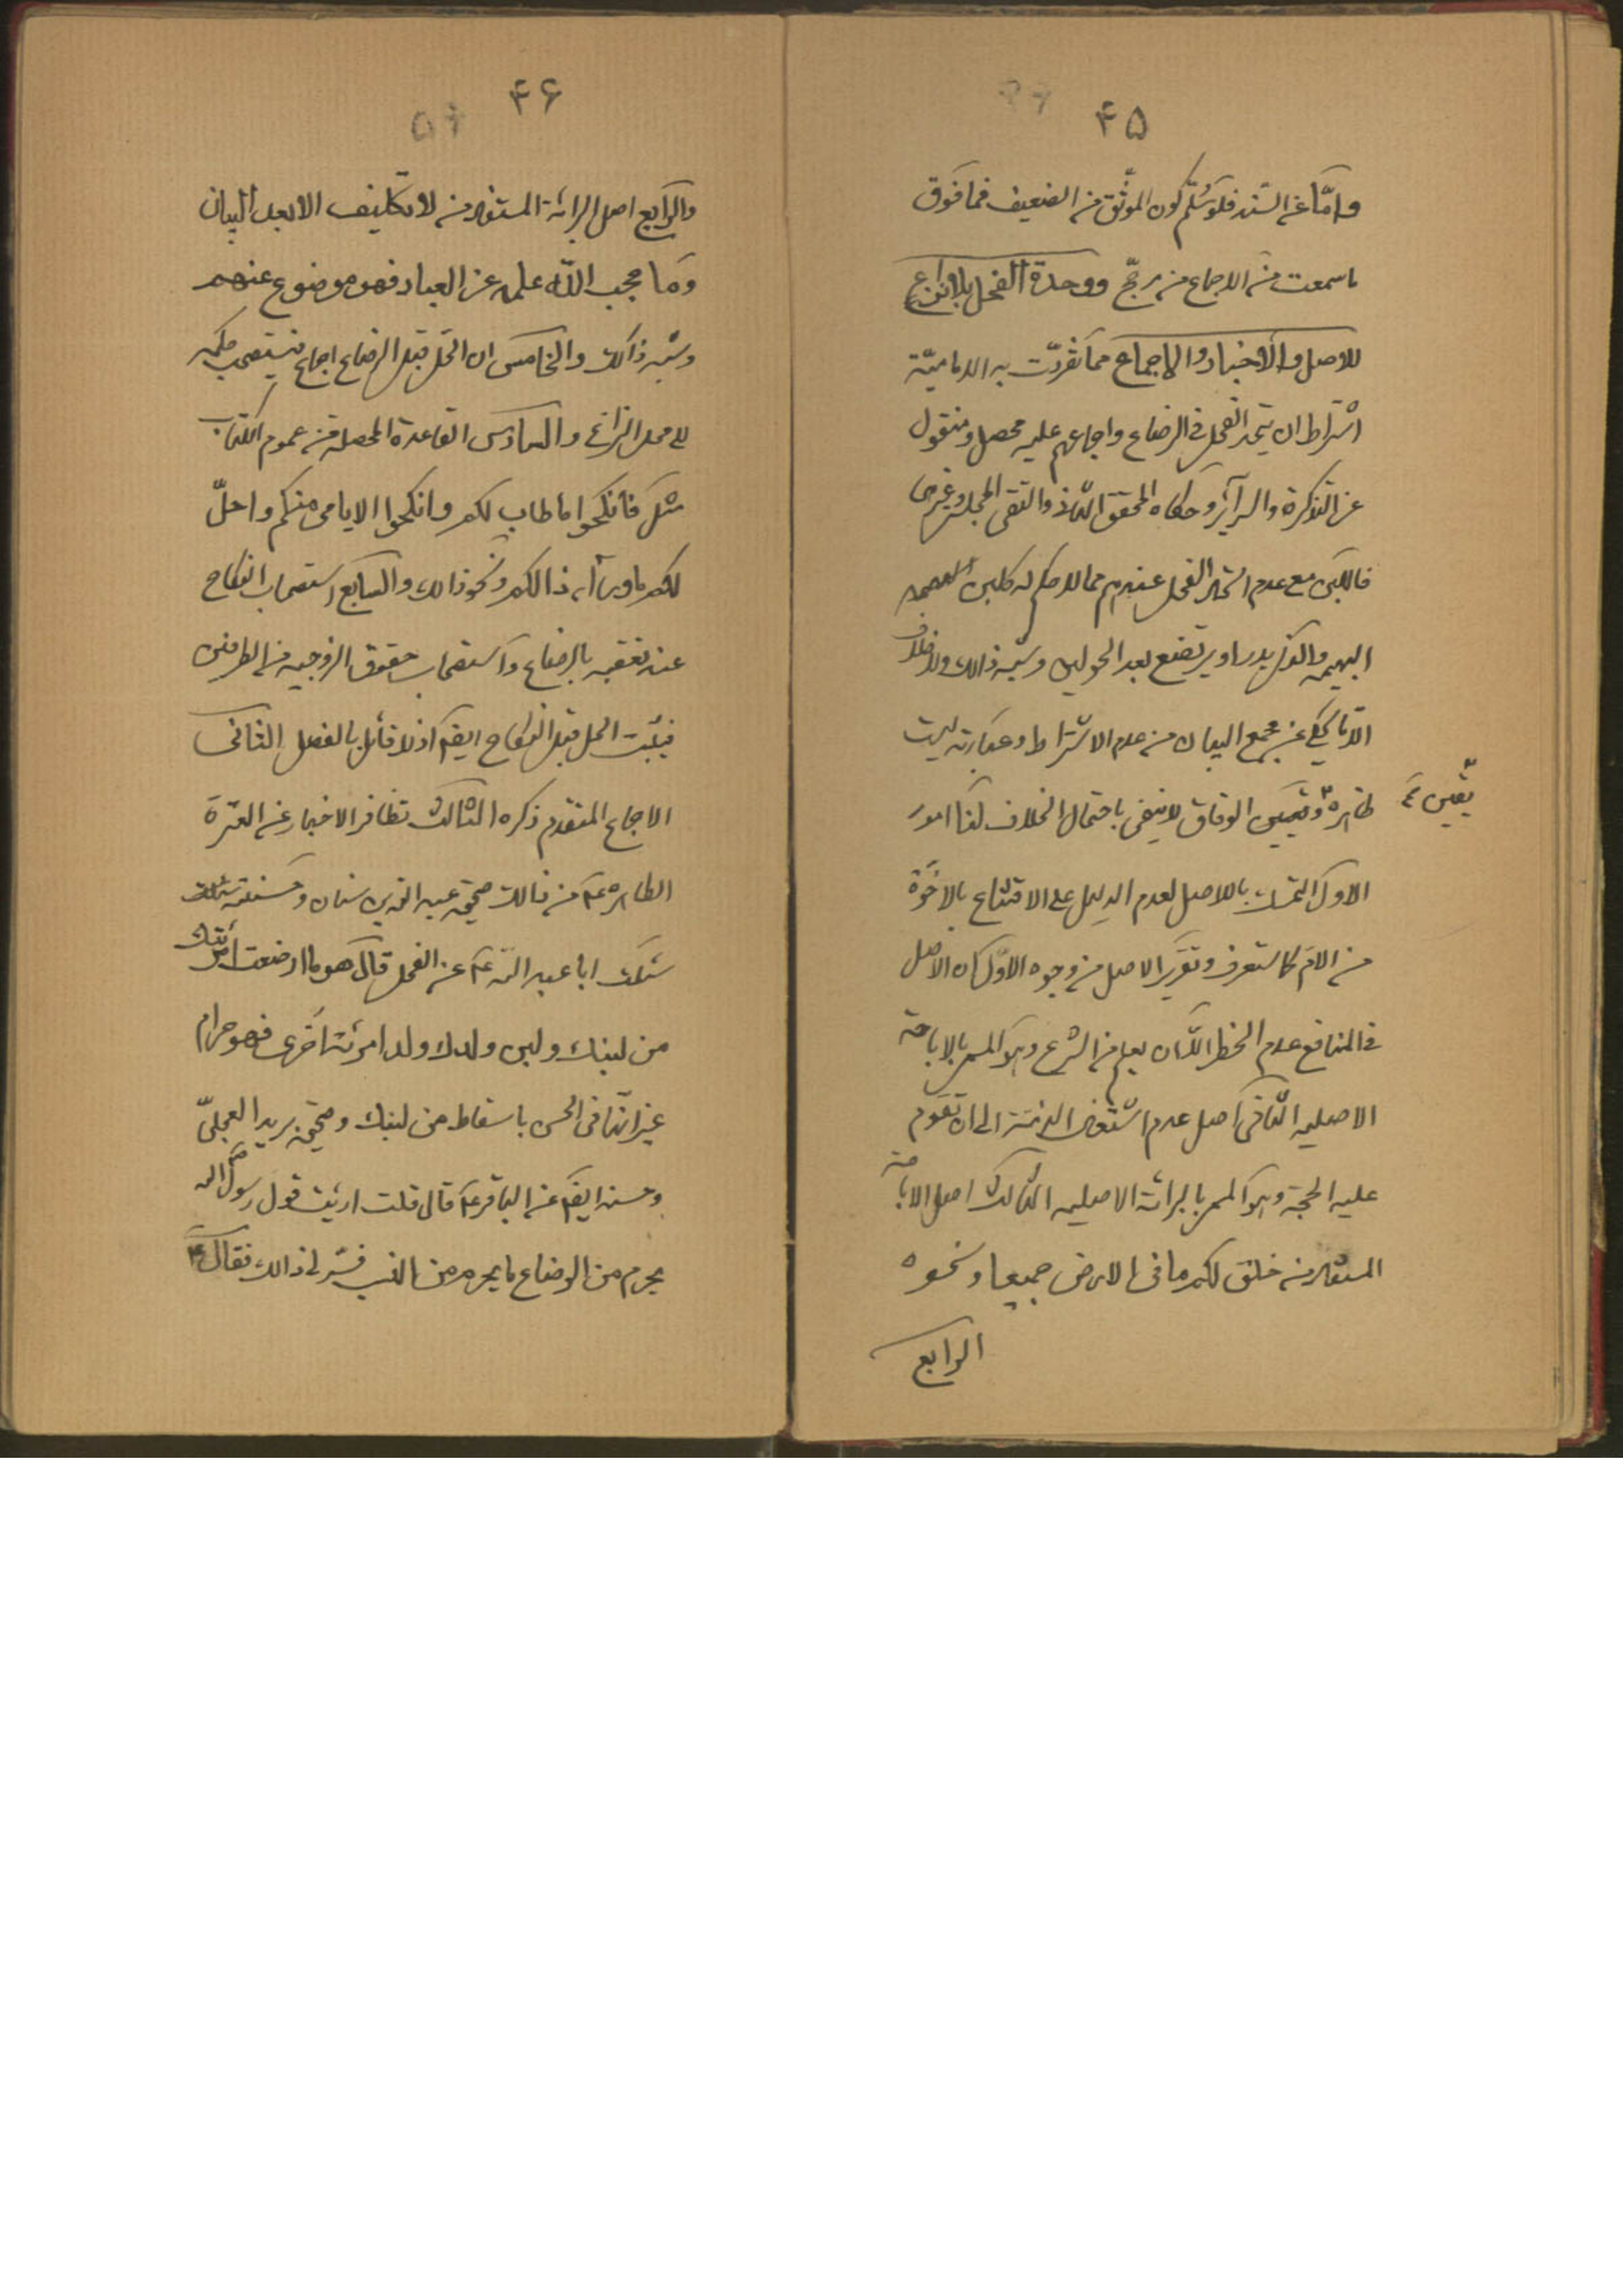 ۴۵
وامّا عن السّند فلو سُلّم كون الموثّق من الضعيف فما فوق
ما سمعت من الاجماع من مرجّح ووحدة الفحل بلا نزاع
للاصل والاخبار والاجماع مما تفرّدت به الاماميّة
اشتراط ان يتّحد الفحل في الرضاع واجماعهم عليه محصل ومنقول
عن التذكرة والسرآئر وحكاه المحقق الثاني والتقى المجلسى وغيرهما
فاللبن مع عدم اتحاد الفحل عندهم مما لا حكم له كلبن
البهيمة والذى يدر او يرتضع بعد الحولين وشبه ذالك ولا خلاف
الّا ما يحكى عن مجمع البيان من عدم الاشتراط وعبارته ليست
ظاهرة وتعيين الوفاق لا ينفى باحتمال الخلاف لنا امور
يقين
الاول التمسك بالاصل لعدم الدليل على الاقتناع بالاخوّة
من الام كما ستعرف وتقرير الاصل من وجوه الاوّل كان الاصل
في المنافع عدم الحظر الّا ان يعلم من الشرع وهو المسمى بالاباحة
الاصلية الثّاني اصل عدم اشتغال الذمّة الى ان تقوم
عليه الحجة وهو المسمى بالبرائة الاصلية الثالث اصل الاباحة
المستفاد من خلق لكم ما فى الارض جميعا ونحوه
الرابع
۴۶
والرابع اصل البرائة المستفاد من لا تكليف الا بعد البيان
وما حجب الله علمه عن العباد فهو موضوع عنهم
وشبه ذالك والخامس ان الحل قبل الرضاع اجماع فيستصحب حكمه
الى محل النزاع والسادس القاعدة المحصلة من عموم الكتاب
مثل فانكحوا ما طاب لكم وانكحوا الايامى منكم واحلّ
لكم ما ورآء ذالكم ونحو ذالك والسابع استصحاب النكاح
عند تعقبه بالرضاع واستصحاب حقوق الزوجية من الطرفين
فيثبت الحل قبل النكاح ايضا اذ لا قائل بالفصل الثانى
الاجماع المتقدم ذكره الثالث تظافر الاخبار عن العترة
الطاهرة ع من ذالك صحيحة عبد الله بن سنان وحسنته سئلت
سئلت ابا عبد الله ع عن الفحل قال هو ما ارضعت امرئتك
من لبنك ولبن ولدك ولد امرئة اخرى فهو حرام
غير انّها فى الحسن باسقاط من لبنك وصحيحة بريد العجلىّ
وحسنه ايضا عن الباقر ع قال قلت ارئيت قول رسول الله ص
يحرم من الرضاع ما يحرم من النسب فسّر لى ذالك فقال ع